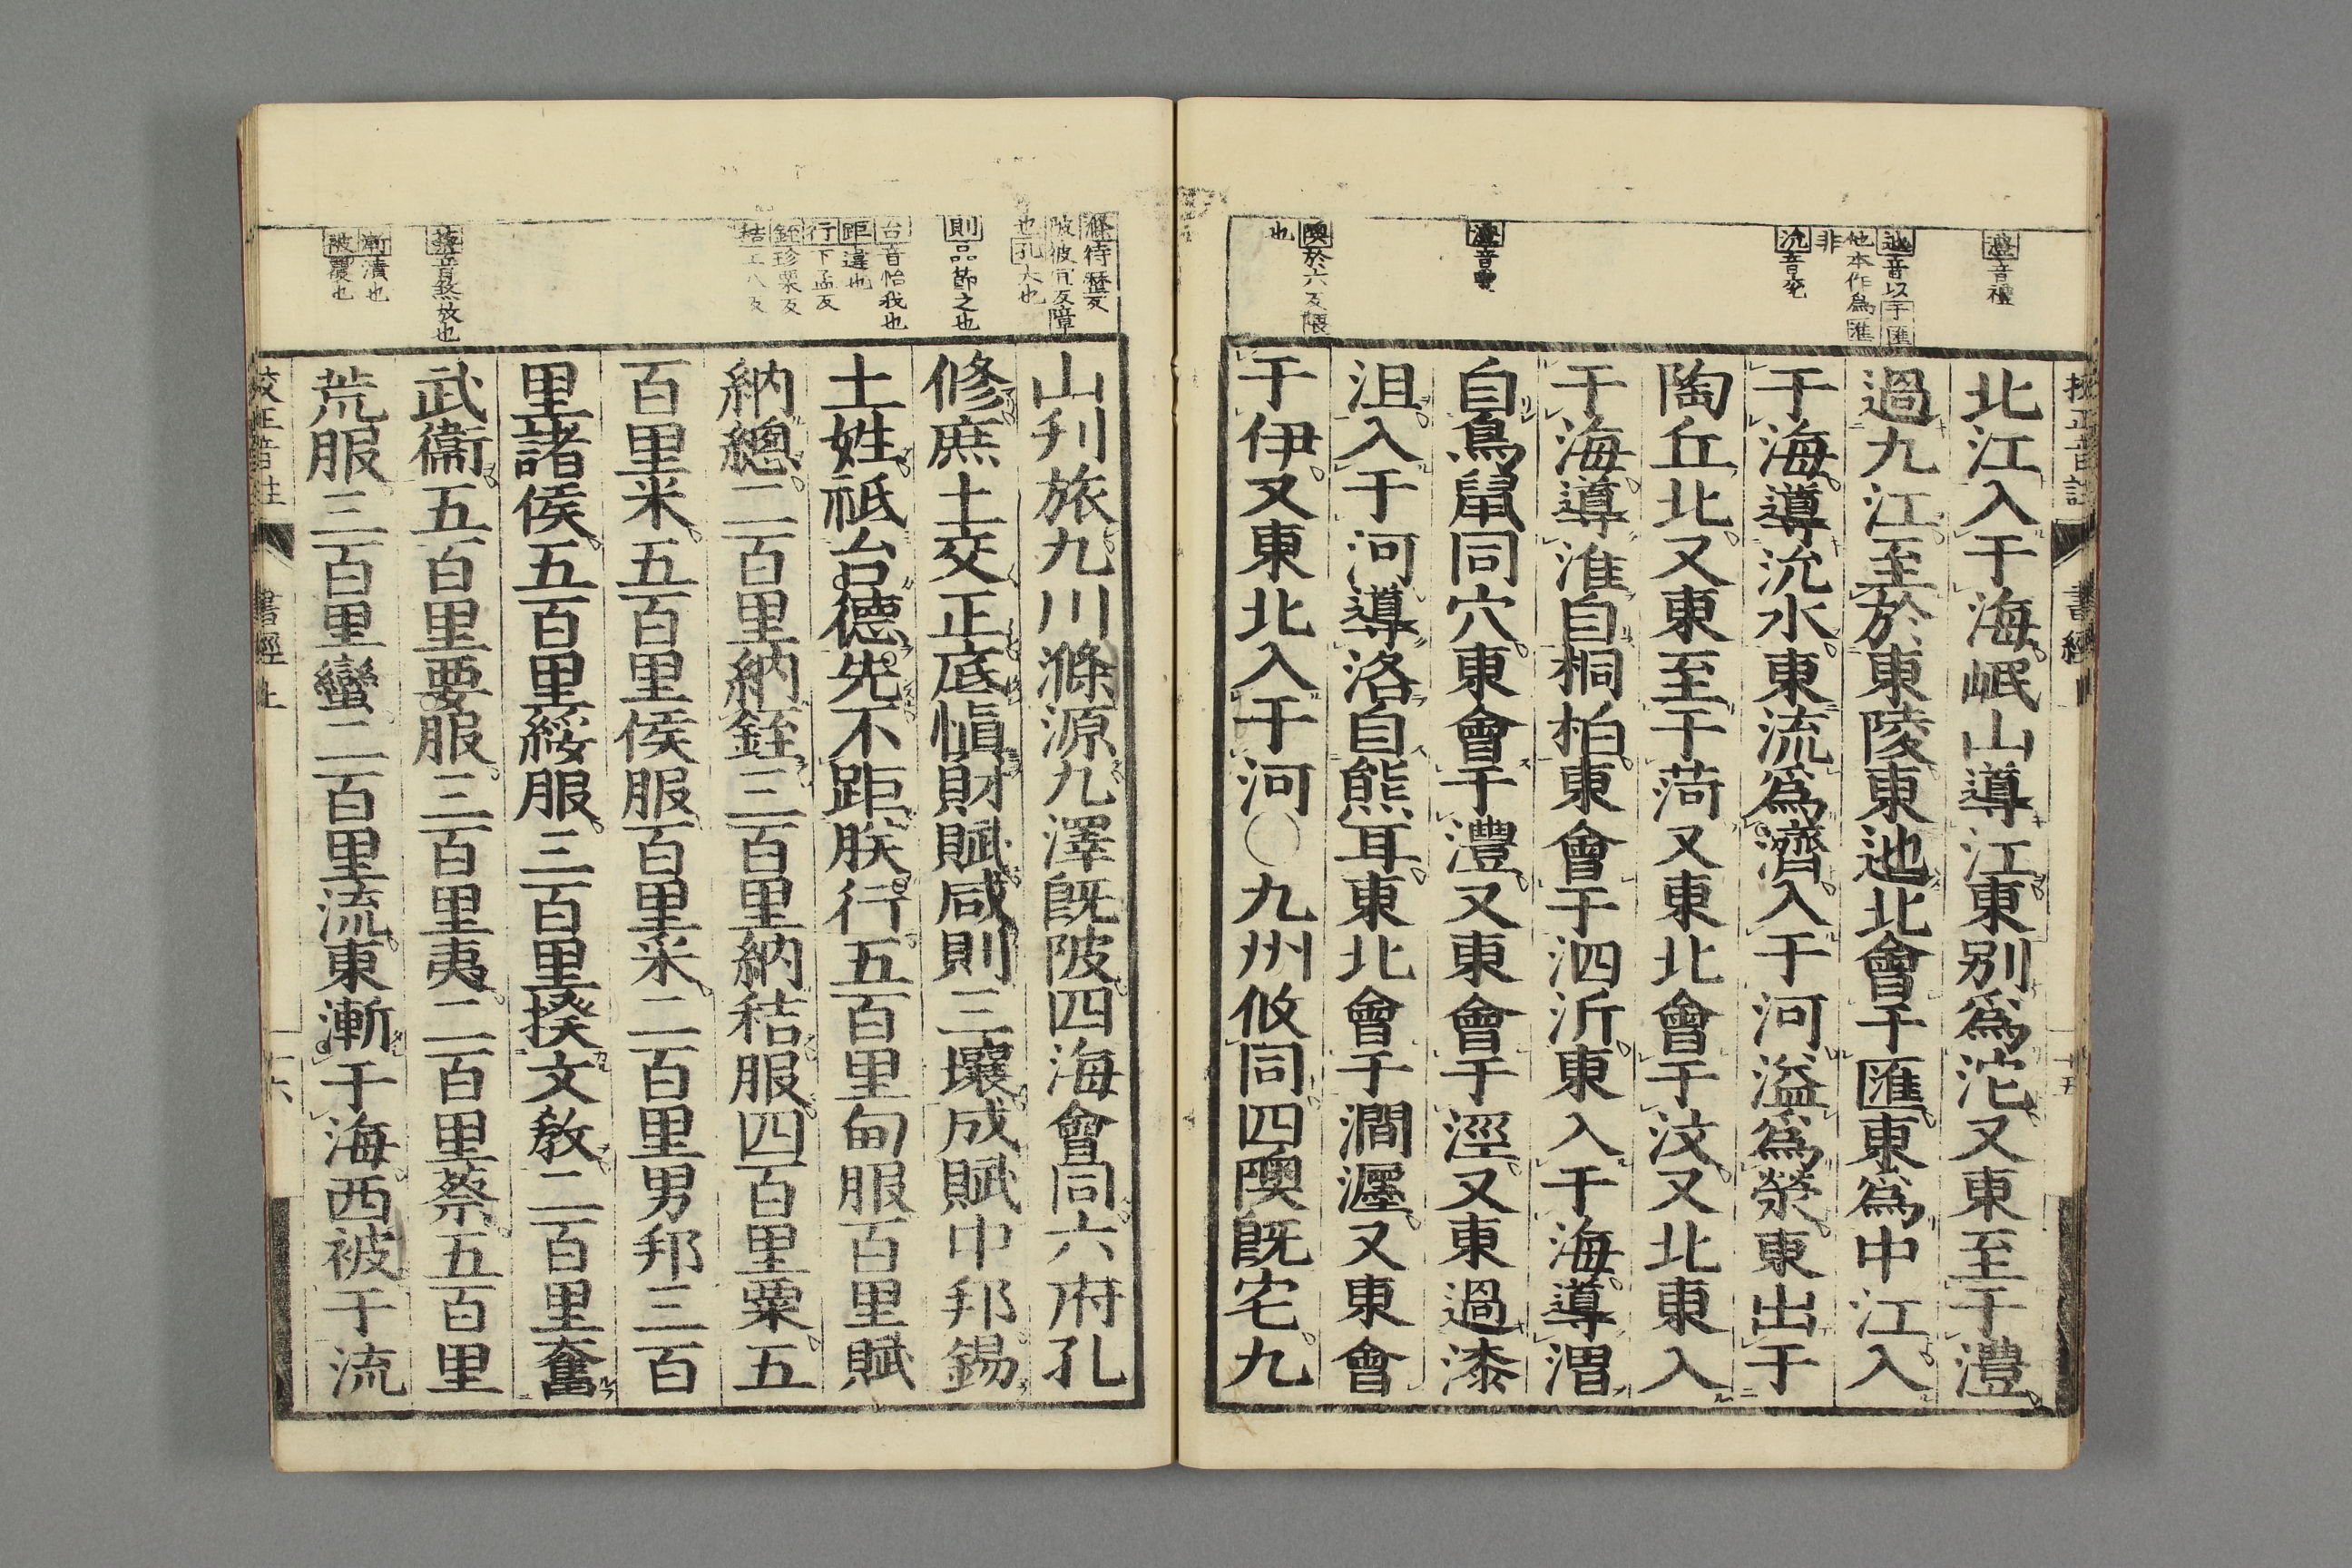 澧音禮
迆音以于匯
他本作為匯
非
沇音兖
灃音豐
隩於六反隈
也
校正音註
書經
十五
北江入于海岷山導江東別為沱又東至于澧
過九江至於東陵東迆北會于匯東為中江入
于海導沇水東流為濟入于河溢為滎東出于
陶丘北又東至于菏又東北會于汶又北東入
于海導淮自桐柏東會于泗沂東入于海導渭
自鳥鼠同穴東會于灃又東會于涇又東過漆
沮入于河導洛自熊耳東北會于澗瀍又東會
于伊又東北入于河○九州攸同四隩既宅九
滌待歷反
陂彼冝反障
也孔大也
則品節之也
台音怡我也
距違也
行下孟反
銍珍栗反
秸工八反
蔡音煞放也
漸漬也
被覆也
山刋旅九川滌源九澤既陂四海會同六府孔
修庶土交正底慎財賦咸則三壤成賦中邦錫
土姓祗台德先不距朕行五百里甸服百里賦
納緫二百里納銍三百里納秸服四百里粟五
百里米五百里侯服百里米二百里男邦三百
里諸侯五百里綏服三百里揆文敎二百里奮
武衞五百里要服三百里夷二百里蔡五百里
荒服三百里蠻二百里流東漸于海西被于流
校正音註
書經上
十六